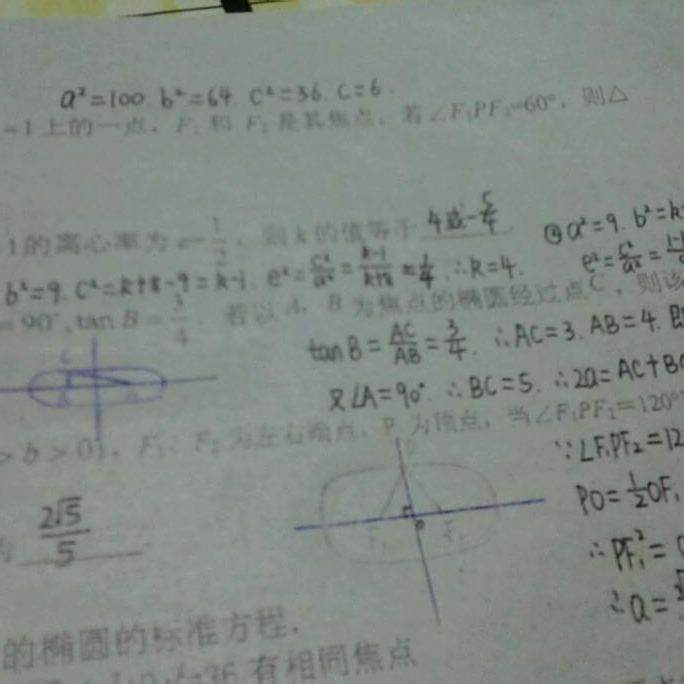 a²=100. b²=64. c²=36. c=6.
=1上的一点，F₁和 F₂是其焦点，若∠F₁PF₂=60°，则△
1的离心率为e=1/2，则k的值等于 4或-5/4
④a²=9. b²=k
b²=9. c²=k+8-9=k-1. e²=c²/a²=k-1/k+8=1/4 ∴k=4.
e²=c²/a²=
=90°,tan B=3/4. 若以A，B为焦点的椭圆经过点C，则该
tanB=AC/AB=3/4. ∴AC=3. AB=4. 即
又∠A=90° ∴BC=5. ∴2a=AC+B
>b>0)，F₁、F₂为左右端点，P为顶点，当∠F₁PF₂=120°
∵∠F₁PF₂=12
PO=1/2OF₁
2√5/5
∴PF₁²=
∴a=
的椭圆的标准方程.
=36有相同焦点